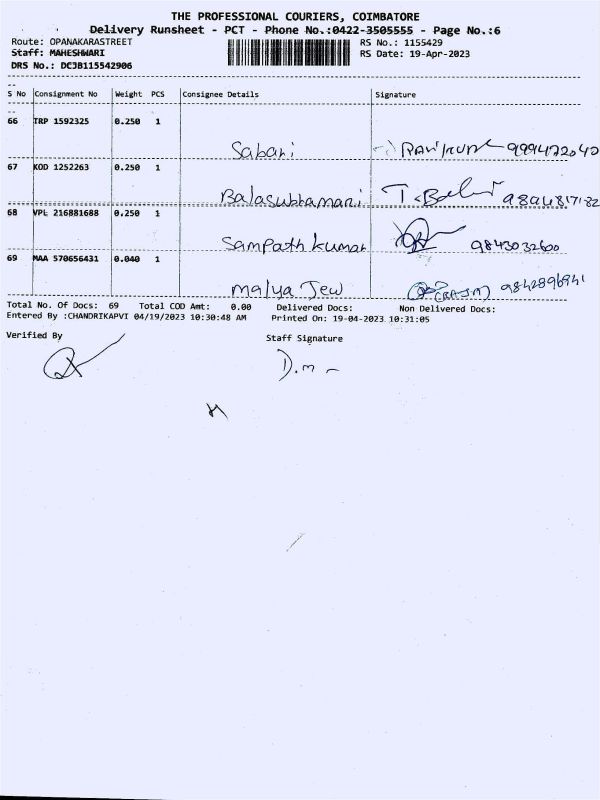 THE PROFESSIONAL COURIERS, COIMBATORE
Delivery Runsheet - PCT - Phone No.:0422-3505555 - Page No.:6
Route: OPANAKARASTREET RS No.: 1155429
Staff: MAHESHWARI RS Date: 19-Apr-2023
DRS No.: DC3B115542906
S No Consignment No Weight PCS Consignee Details Signature
66 TRP 1592325 0.250 1
Sabari
67 KOD 1252263 0.250 1
Balasubramani
68 VPL 216881688 0.250 1
Sampath kumar 9843032600
69 MAA 570656431 0.040 1
Malya Jew (RAJA) 9842896941
Total No. Of Docs: 69 Total COD Amt: 0.00 Delivered Docs: Non Delivered Docs:
Entered By :CHANDRIKAPVI 04/19/2023 10:30:48 AM Printed On: 19-04-2023 10:31:05
Verified By Staff Signature
D.m